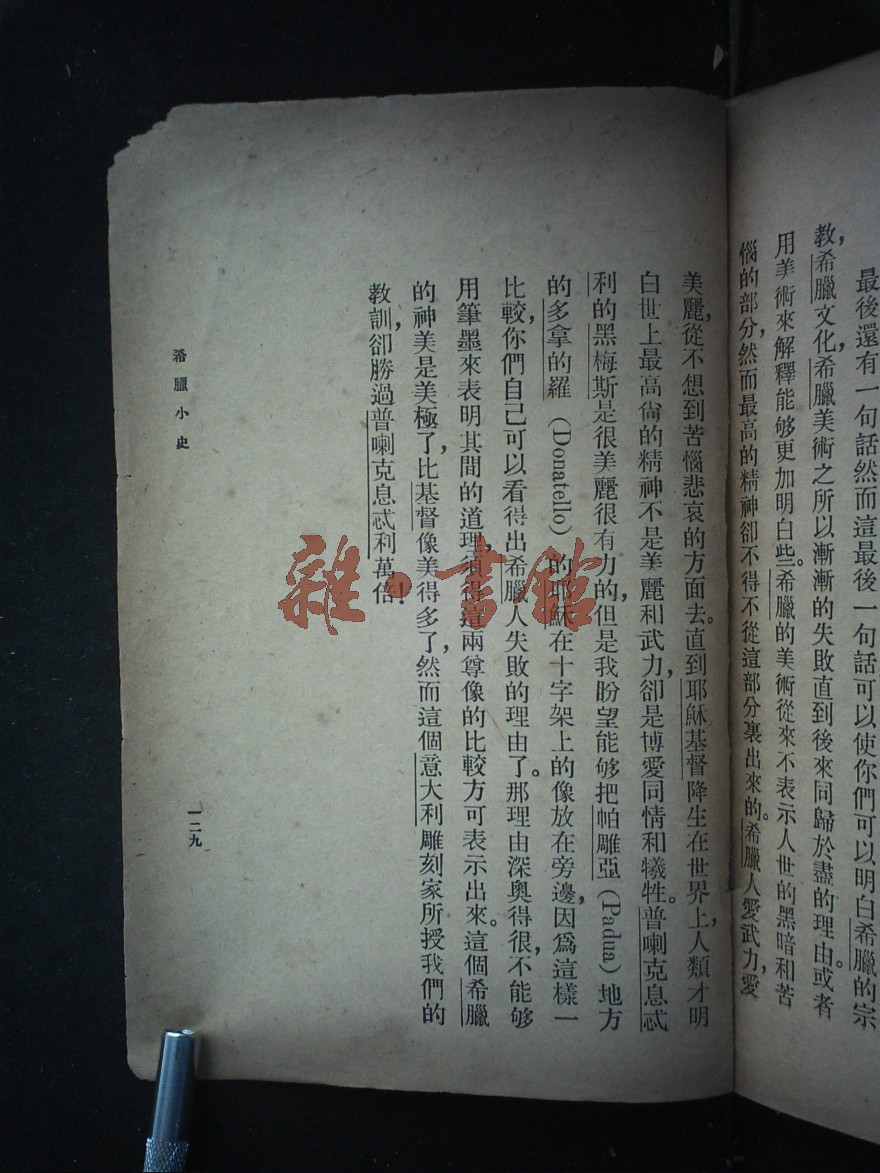 最後還有一句話然而這最後一句話可以使你們可以明白希臘的宗
教，希臘文化，希臘美術之所以漸漸的失敗直到後來同歸於盡的理由。或者
用美術來解釋能够更加明白些。希臘的美術從來不表示人世的黑暗和苦
惱的部分，然而最高的精神卻不得不從這部分裏出來的。希臘人愛武力，愛
美麗，從不想到苦惱悲哀的方面去。直到耶穌基督降生在世界上，人類才明
白世上最高尙的精神不是美麗和武力，卻是博愛同情和犧牲。普喇克息忒
利的黑梅斯是很美麗很有力的，但是我盼望能够把帕雕亞（Padua）地方
的多拿的羅（Donatello）的耶穌在十字架上的像放在旁邊，因爲這樣一
比較，你們自己可以看得出希臘人失敗的理由了。那理由深奥得很，不能够
用筆墨來表明其間的道理，須得這兩尊像的比較方可表示出來。這個希臘
的神美是美極了，比基督像美得多了，然而這個意大利雕刻家所授我們的
教訓，卻勝過普喇克息忒利萬倍！
希臘小史
一二九
雜·書館